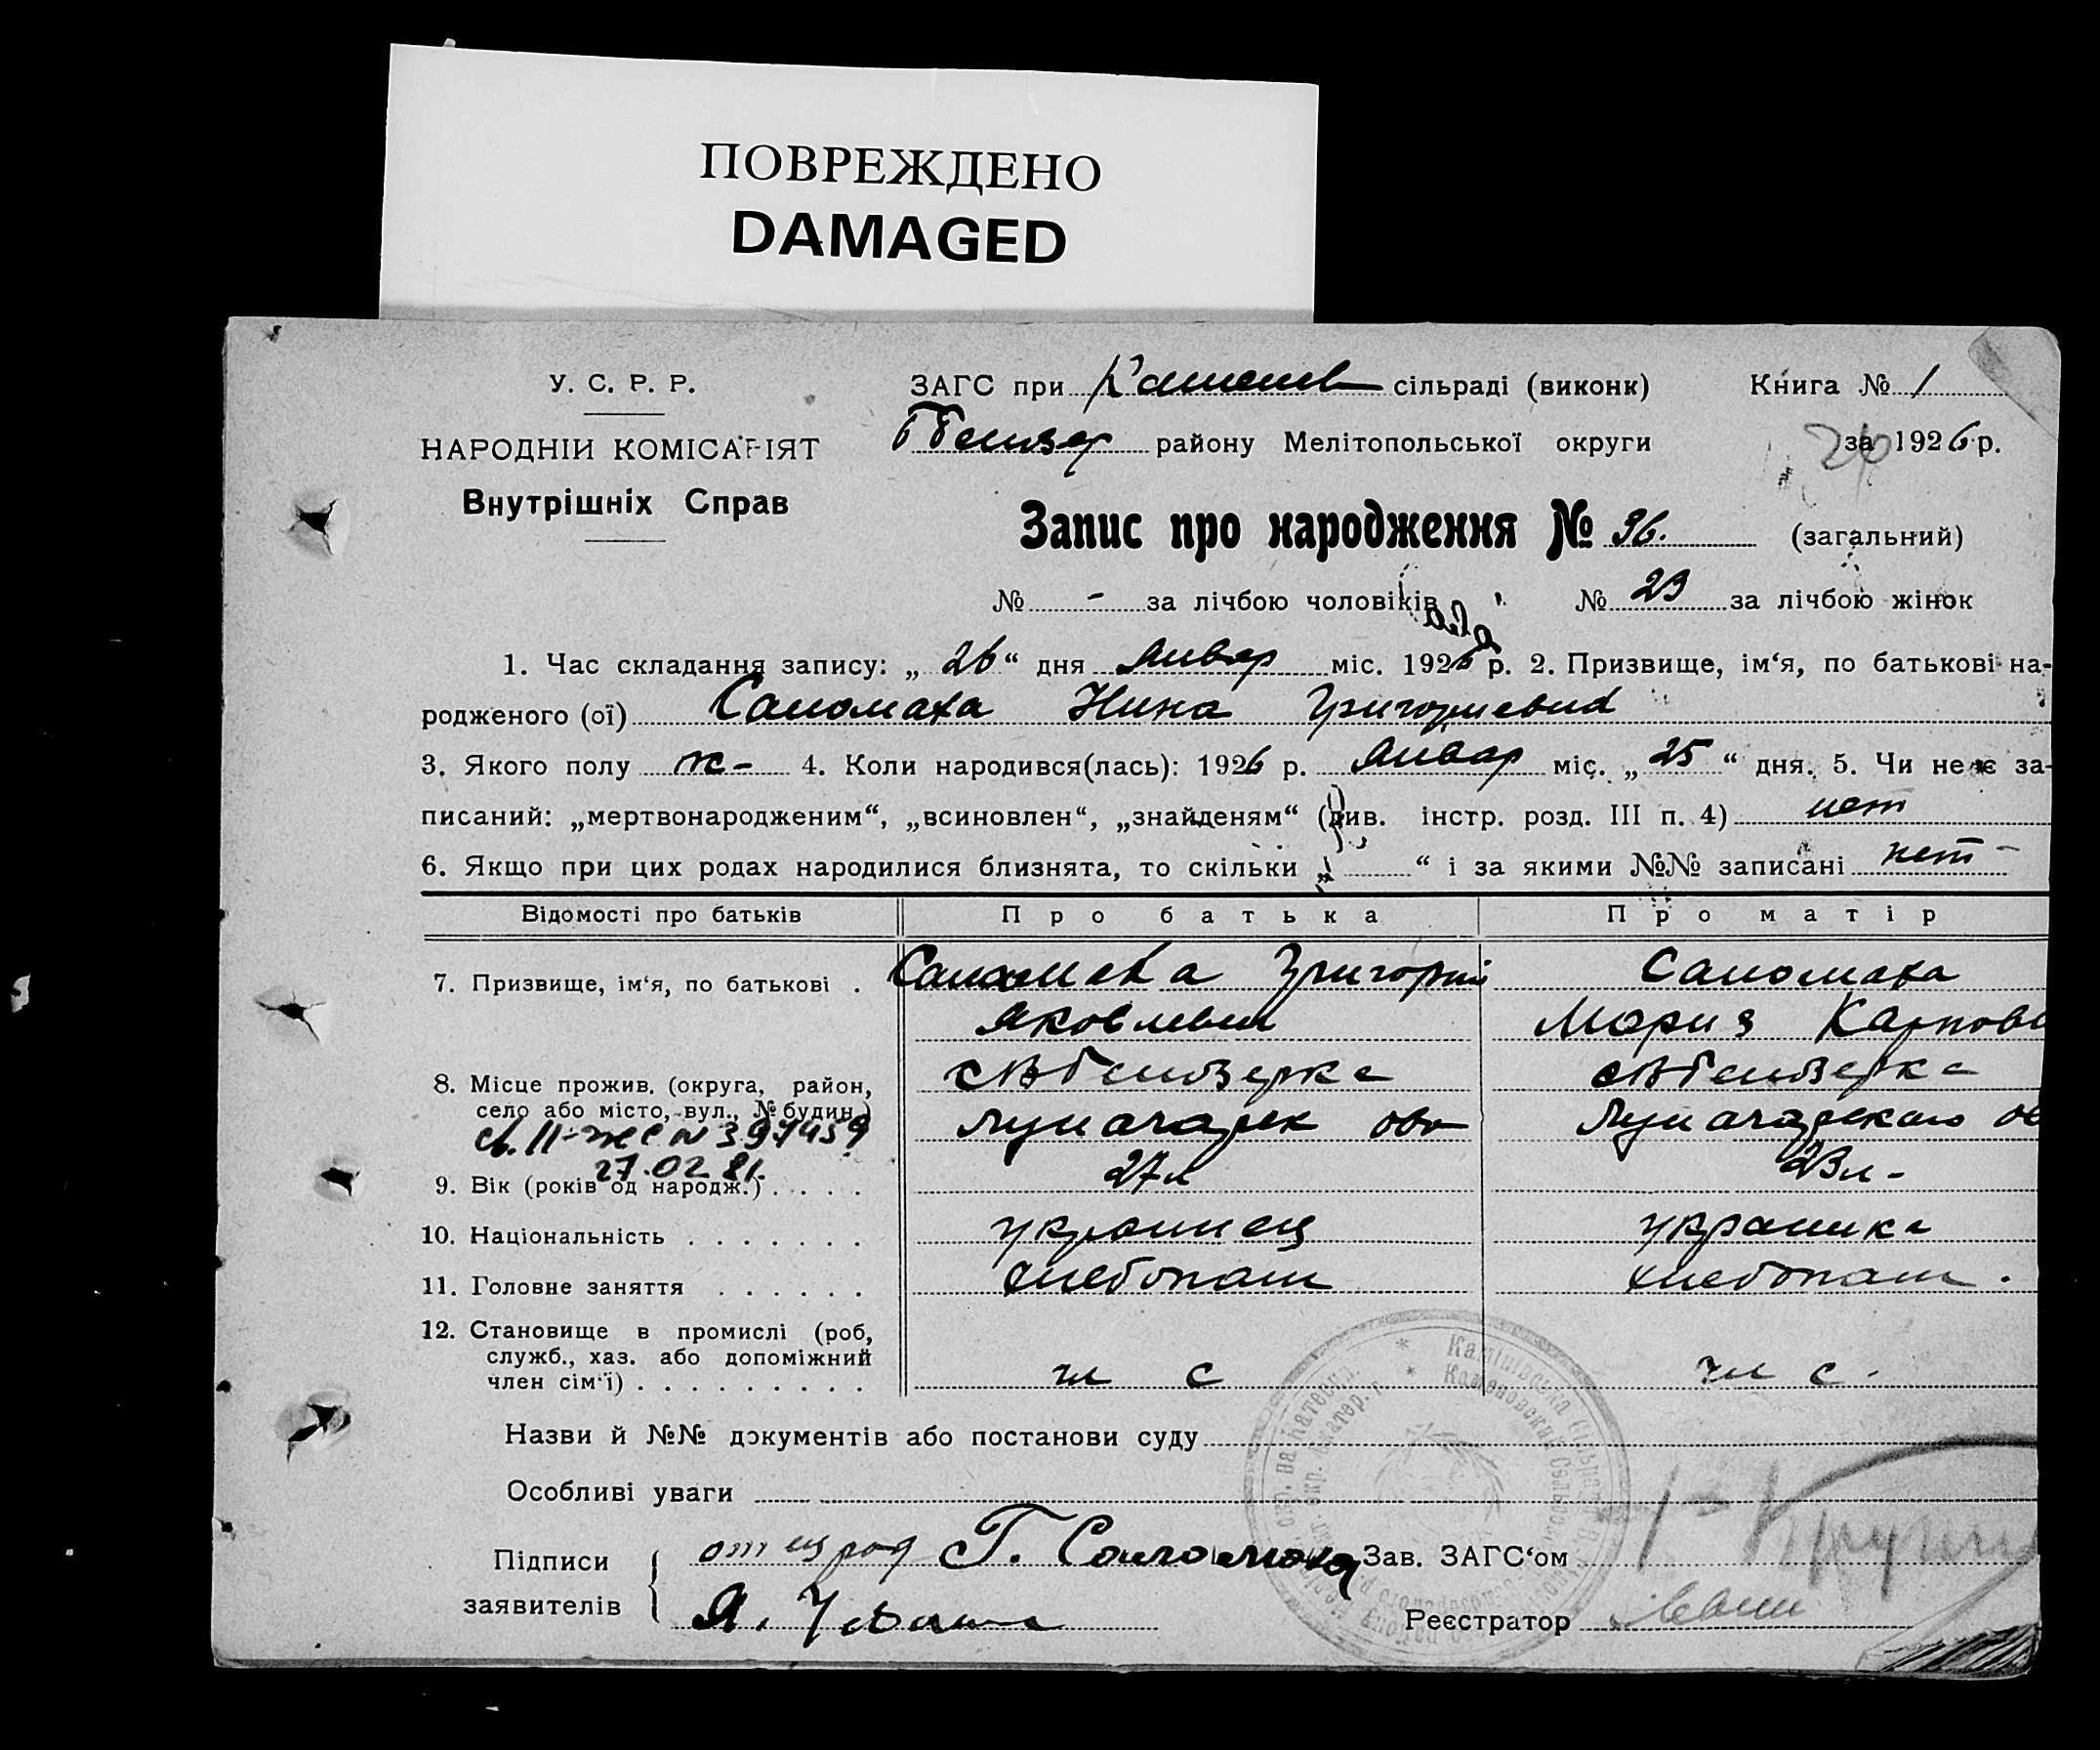 ПОВРЕЖДЕНО
DAMAGED
У. С. Р. Р.
НАРОДНІЙ КОМІСАРІЯТ
Внутрішніх Справ
ЗАГС при Каменев сільраді (виконк) Книга № 1
району Мелітопольської округи за 1926 р.
Запис про народження № 36. (загальний)
№ - за лічбою чоловіків № 23 за лічбою жінок
1. Час складання запису: „ 26 “ дня Январ міс. 1926 р. 2. Призвище, ім‘я, по батькові на-
родженого (ої) Саломаха Нина
3. Якого полу ж- 4. Коли народився(лась): 1926 р. Январ міс. „ 25 “ дня. 5. Чи не є за-
писаний: „мертвонародженим“, „всиновлен“, „знайденям“ (див. інстр. розд. III п. 4) нет
6. Якщо при цих родах народилися близнята, то скільки „ “ і за якими №№ записані нет -
Відомості про батьків Про батька Про матір
7. Призвище, ім‘я, по батькові . Григорий Саломаха
Яковлевич Мария Карпов
8. Місце прожив. (округа, район,
село або місто, вул., № будин.)
27.02.81.
9. Вік (років од народж.) . . . . 27 л 23 л -
10. Національність . . . . . . . украинец украинка
11. Головне заняття . . . . . . хлебопаш хлебопаш .
12. Становище в промислі (роб,
служб., хаз. або допоміжний
член сім‘ї) . . . . . . . . . чл с чл с .
Назви й №№ документів або постанови суду
Особливі уваги
Підписи Г. Саломаха Зав. ЗАГС‘ом
заявителів Я. Реєстратор